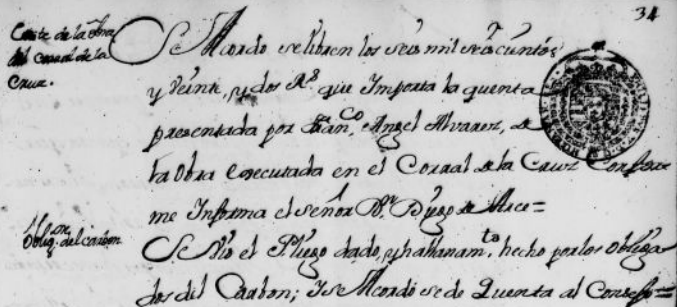 34
Coste de la obra
del corral de la
Cruz.
Se Acordo se libren los seis mil seiscientos
y Veinte, y dos Rs. que Importa la quenta
presentada por Franco. Angel Alvarez, de
la Obra executada en el Corral de la Cruz Confor
me Informa el señor Dn. Diego de Arce=
Obligon. del carbon
Se Vio el Pliego dado, y hallanamto. hecho por los obliga
dos del Carbon; y se Acordó se de Quenta al Consejo=